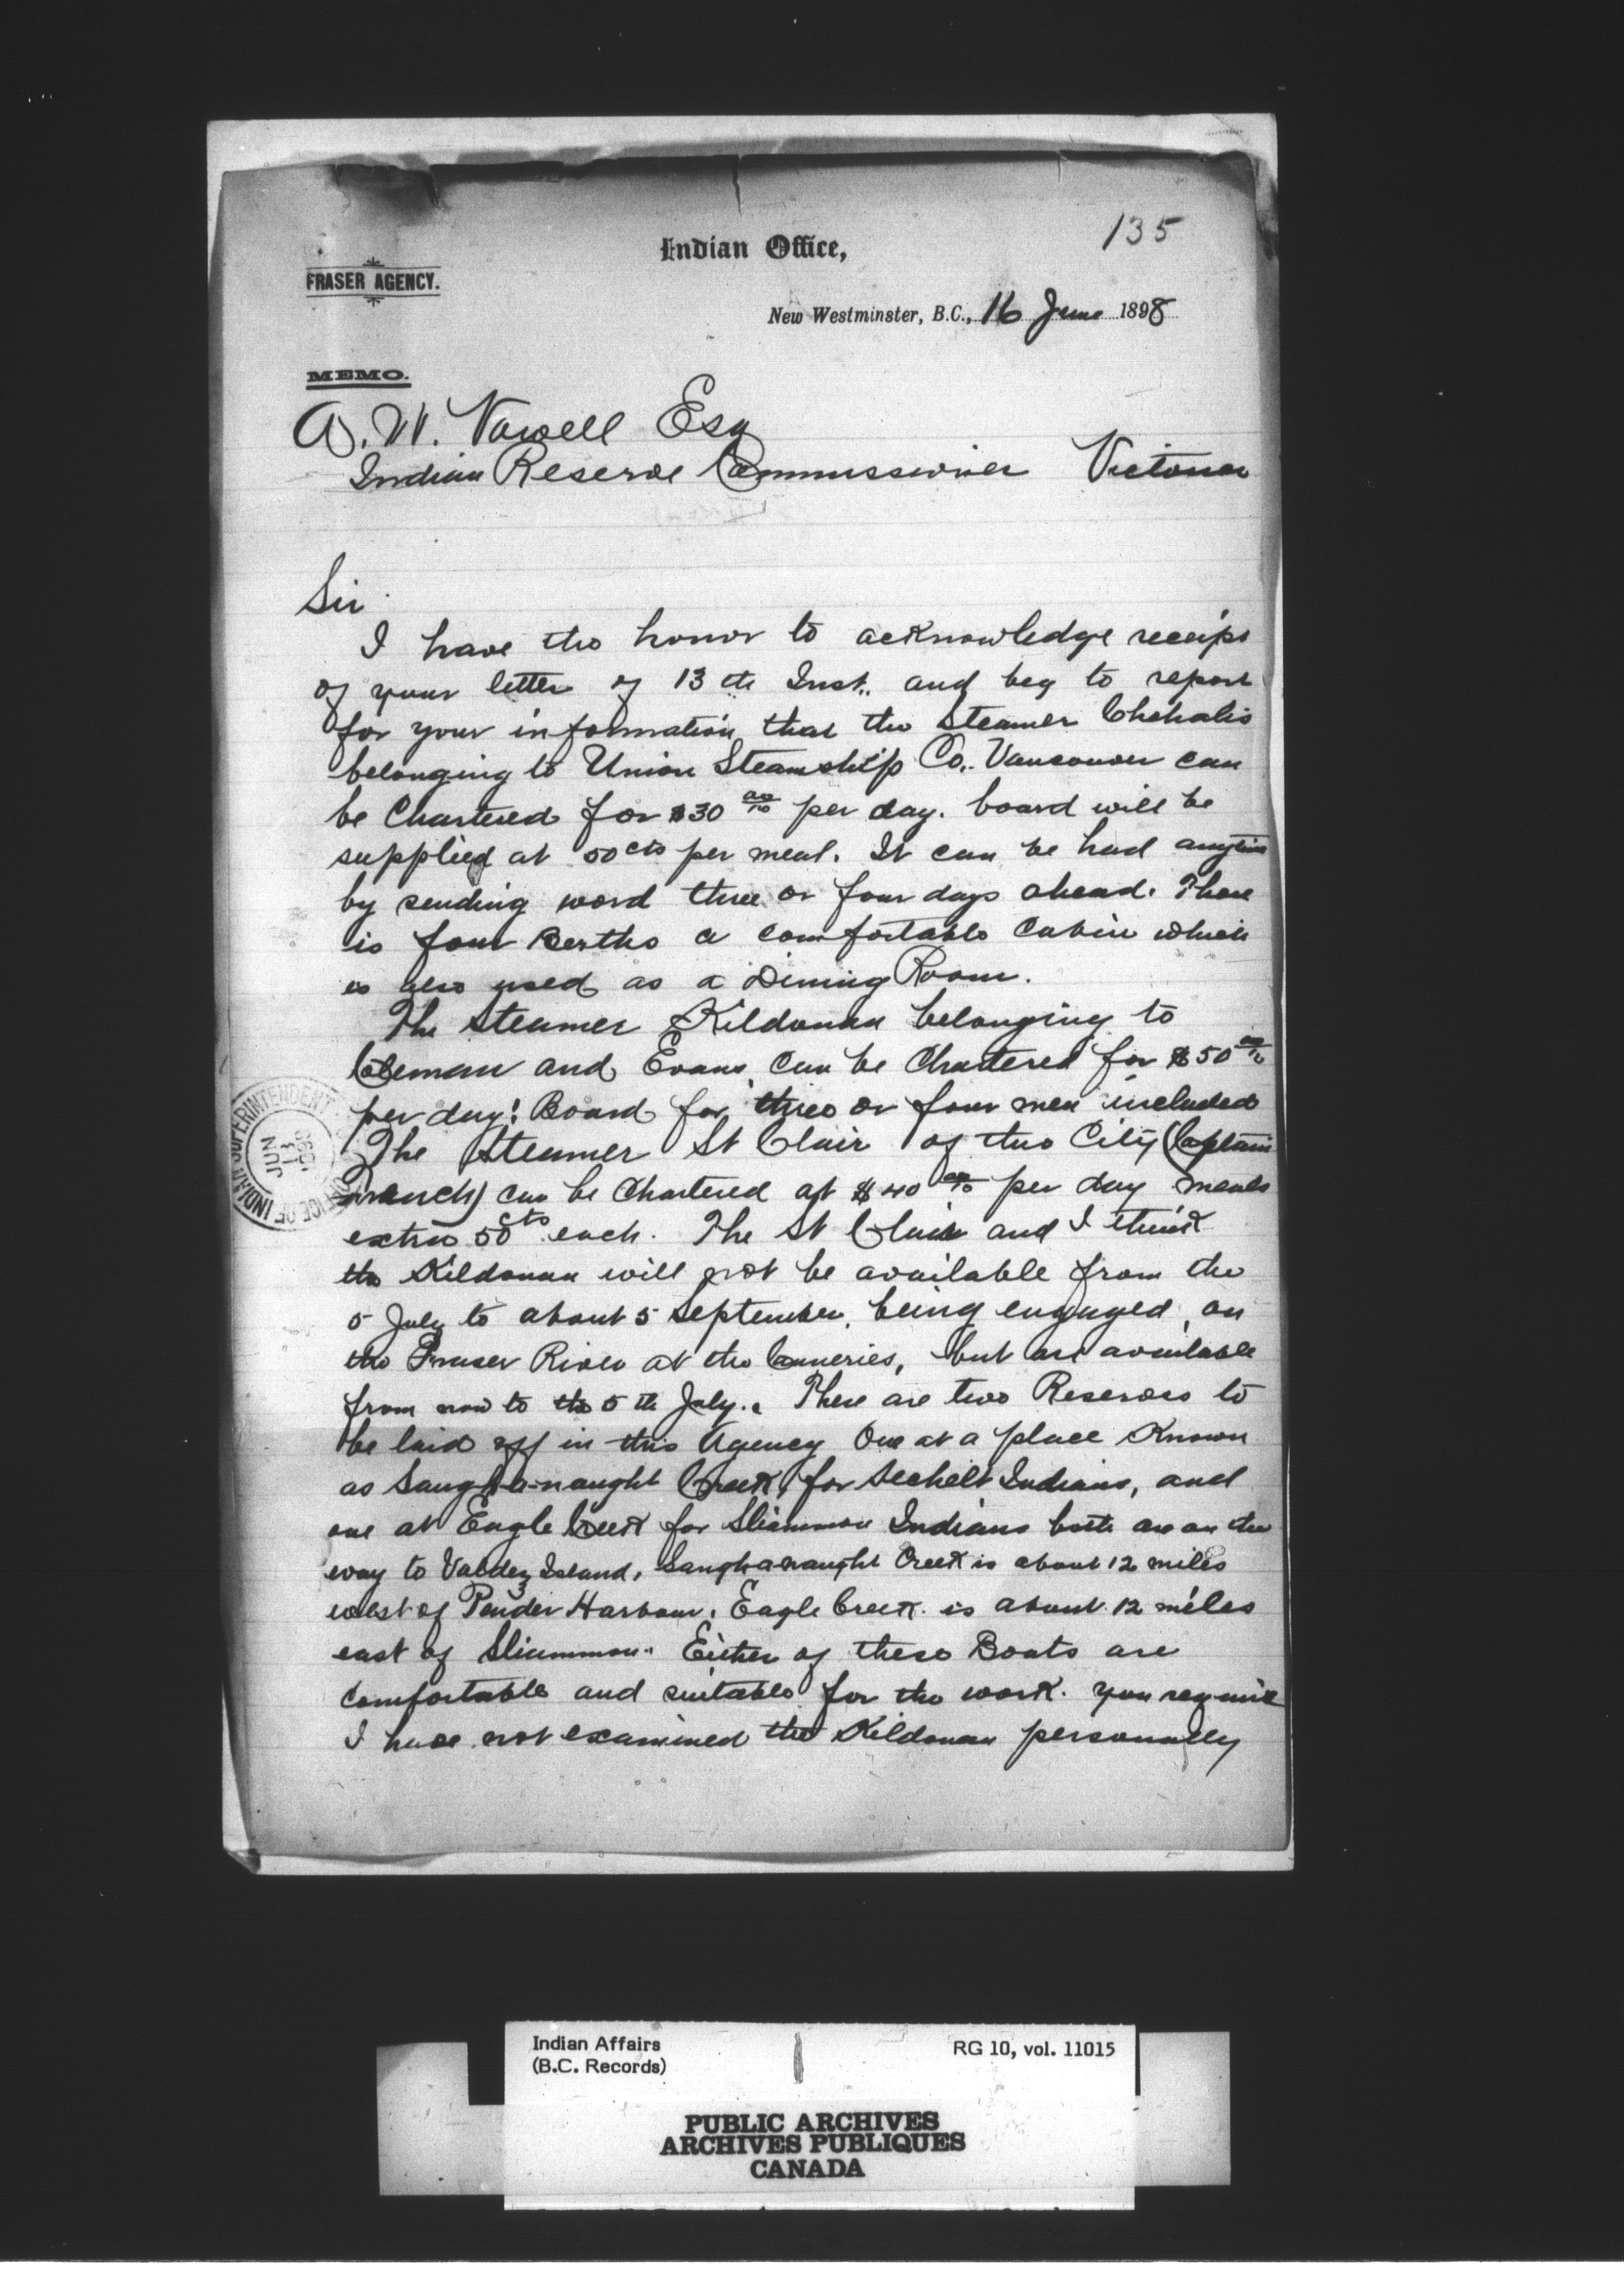 135
Indian Office,
FRASER AGENCY.
New Westminster, B.C., 16 June 1898
MEMO.
A. W. Vowell Esq
Indian Reserve Commissioner Victoria
Sir
I have the honor to acknowledge receipt
of your letter of 13th Inst. and beg to report
for your information that the Steamer Chehalis
belonging to Union Steamship Co. Vancouver can
be Chartered for $30 00/100 per day. board will be
supplied at 50 cts per meal. It can be had anytime
by sending word three or four days ahead. There
is four Berths a comfortable Cabin which
is also used as a Dining Room.
The Steamer Kildonan belonging to
and Evans, can be Chartered for $50 00/100
per day! Board for three or four men included
The Steamer St Clair of this City (Captain
) can be Chartered at $40 00/100 per day meals
extra 50 cts each. The St Clair and I think
the Kildonan will not be available from the
5 July to about 5 September, being engaged, on
the Fraser River at the Canneries, but are available
from now to the 5th July. There are two Reserves to
be laid off in this Agency One at a place Known
as Saugh-a-naught Creek, for Sechelt Indians, and
one at Eagle Creek for Sliammon Indians both are on the
way to Valdez Island, Saughanaught Creek is about 12 miles
west of Pender Harbour. Eagle Creek is about 12 miles
east of Sliammon. Either of these Boats are
comfortable and suitable for the work. you require
I have not examined the Kildonan personally
OFFICE OF INDIAN SUPERINTENDENT
JUN
Indian Affairs
(B.C. Records)
RG 10, vol. 11015
PUBLIC ARCHIVES
ARCHIVES PUBLIQUES
CANADA